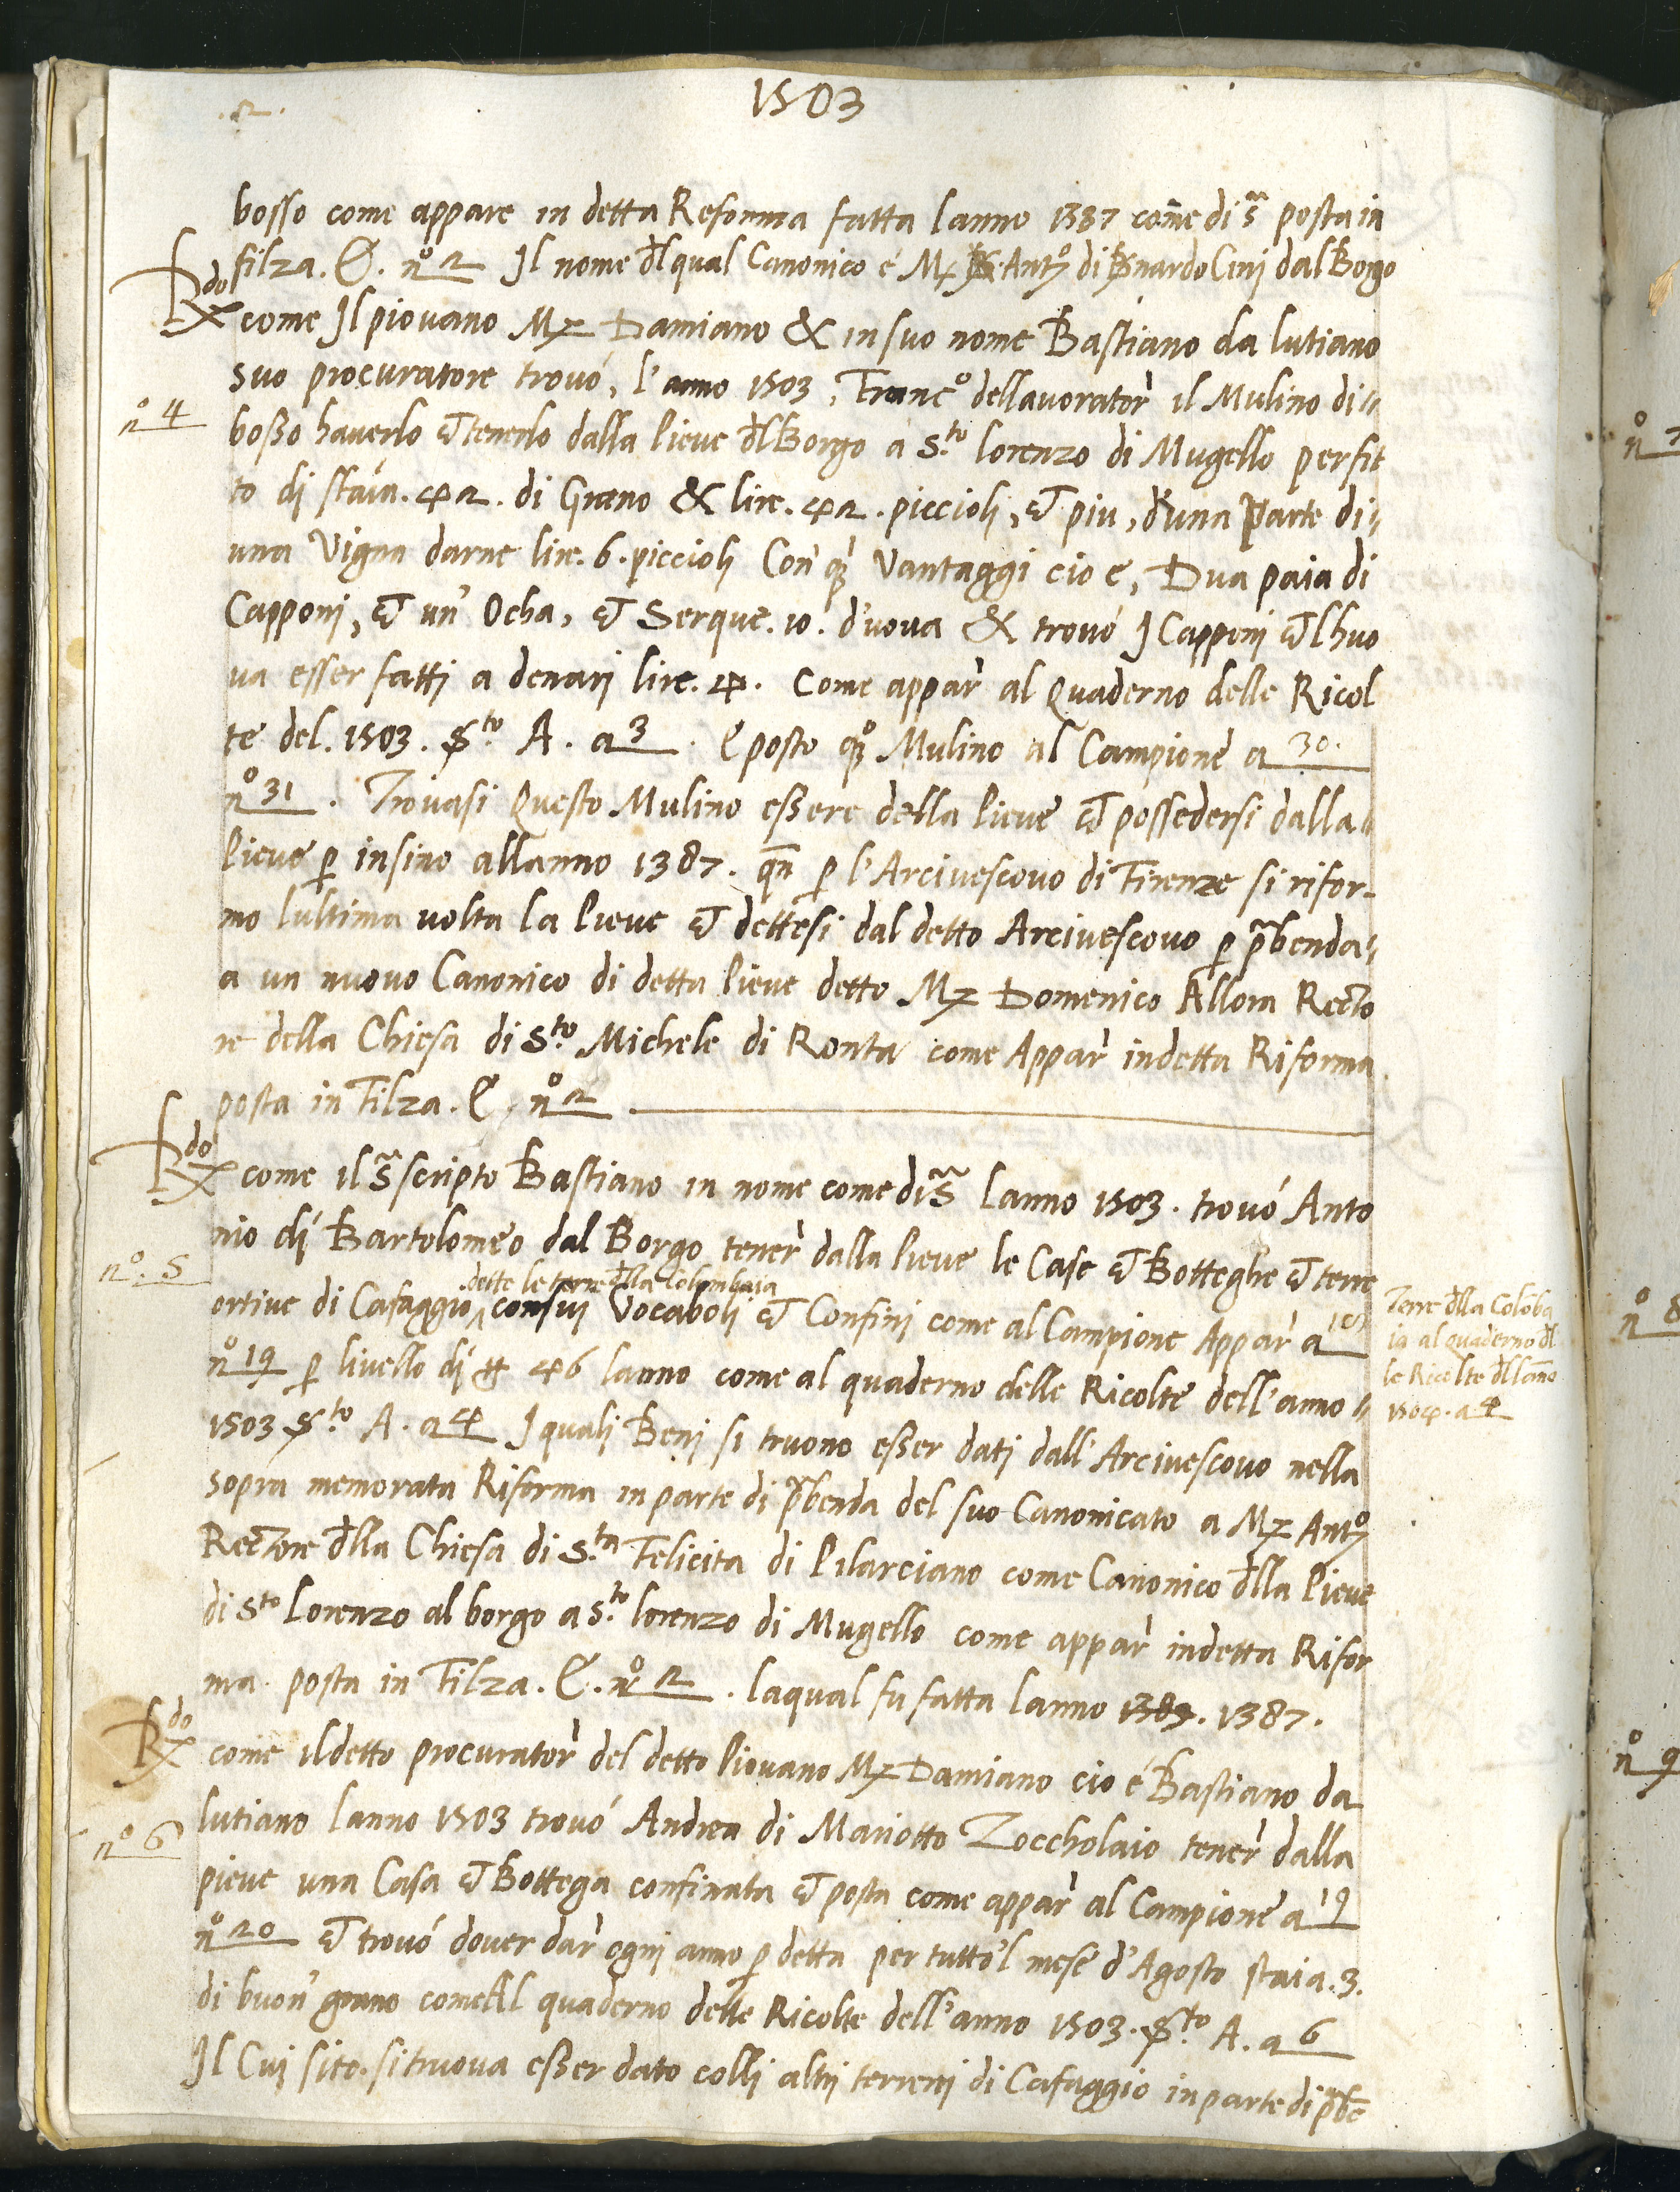 .2.
1503
bosso come appare in detta Reforma fatta lanno 1387 come di s.ª posta in
filza. C. nº 2 Il nome dl qual Canonico é Mz Antº di Bnardo Cini dal Borgo
Rdo come Il piovano Mz Damiano & in suo nome Bastiano da lutiano
suo procuratore trovó, l'anno 1503, Francº dellavorator il Mulino di
nº 4
boßo haverlo et tenerlo dalla pieve dl Borgo a S.to lorenzo di Mugello per fit
to di staia. 42. di Grano & lire. 42. piccioli, et piu, d'una parte di
una Vigna darne lire. 6. piccioli Con qi Vantaggi cio e, Dua paia di
Capponi, et un' Ocha, et Serque. 10. d'uova & trovó I Capponi et lhuo
va esser fatti a denari lire. 4. Come appar al Quaderno delle Ricol
te del. 1503. S.to A. a 3. E posto qº Mulino al Campione a 30.
nº 31. Trovasi Questo Mulino eßere della pieve et possedersi dalla
pieve p insino allanno 1387. qn p l'Arcivescovo di Firenze si rifor-
mo lultima volta la pieve et dettesi dal detto Arcivescovo p pbenda
a un nuovo Canonico di detta pieve detto Mz Domenico Allora Recto
re della Chiesa di S.to Michele di Ronta come Appar in detta Riforma
posta in Filza. C. nº 2
Rdo come il s.ª scripto Bastiano in nome come di s.ª lanno 1503. trovó Anto
nio di Bartolomeo dal Borgo tener dalla pieve le Case et Botteghe et terre
nº. 5
dette le terre dlla Colombaia
ortive di Cafaggio consui Vocaboli et Confini come al Campione Appar a
nº 19 p livello di # 46 lanno come al quaderno delle Ricolte dell'anno
1503 S.to A. a 4 I quali Beni si truono eßer dati dall'Arcivescovo nella
Terre dlla Coloba
ia al quaderno dl
le Ricolte dl lano
1504. a 4
sopra memorata Riforma in parte di pbenda del suo Canonicato a Mz Antº
Rectore dlla Chiesa di S.ta Felicita di Pilarciano come Canonico dlla Pieve
di S.to Lorenzo al borgo a S.to lorenzo di Mugello come appar indetta Rifor
ma posta in Filza. C. nº 2. laqual fu fatta lanno 1303. 1387.
Rdo come il detto procurator del detto piovano Mz Damiano cio é Bastiano da
lutiano lanno 1503 trovó Andrea di Mariotto Zoccholaio tener dalla
nº 6
pieve una Casa et Bottega confinata et posta come appar al Campione a 19
nº 20 et trovó dover dar ogni anno p detta per tutto'l mese d'Agosto staia. 3.
di buon' grano come Al quaderno delle Ricolte dell'anno 1503. S.to A. a 6
Il Cui sito. si truova eßer dato colli altri terreni di Cafaggio in parte di pbe
nº 7
nº 8
nº 9